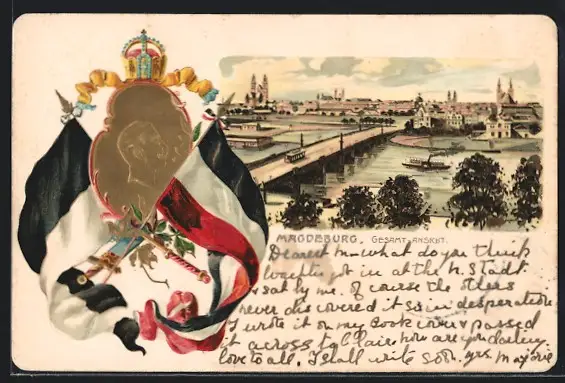 MAGDEBURG. GESAMT-ANSICHT.
Dearest M – what do you think
got in at the N. Stadt
& sat by me. of course the others
never discovered it so in desperation
I wrote it on my book cover & passed
it across to Claire how are you darling
love to all. I shall write soon. yrs. Marjorie